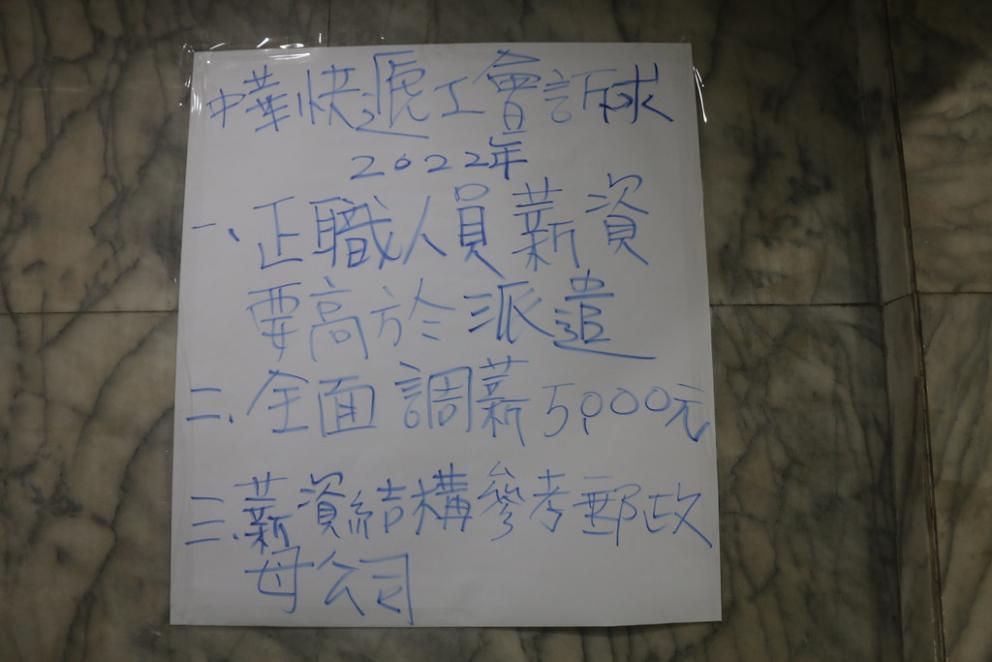 中華快遞工會訴求
2022年
一、正職人員薪資
要高於派遣
二、全面調薪5,000元
三、薪資結構參考郵政
母公司